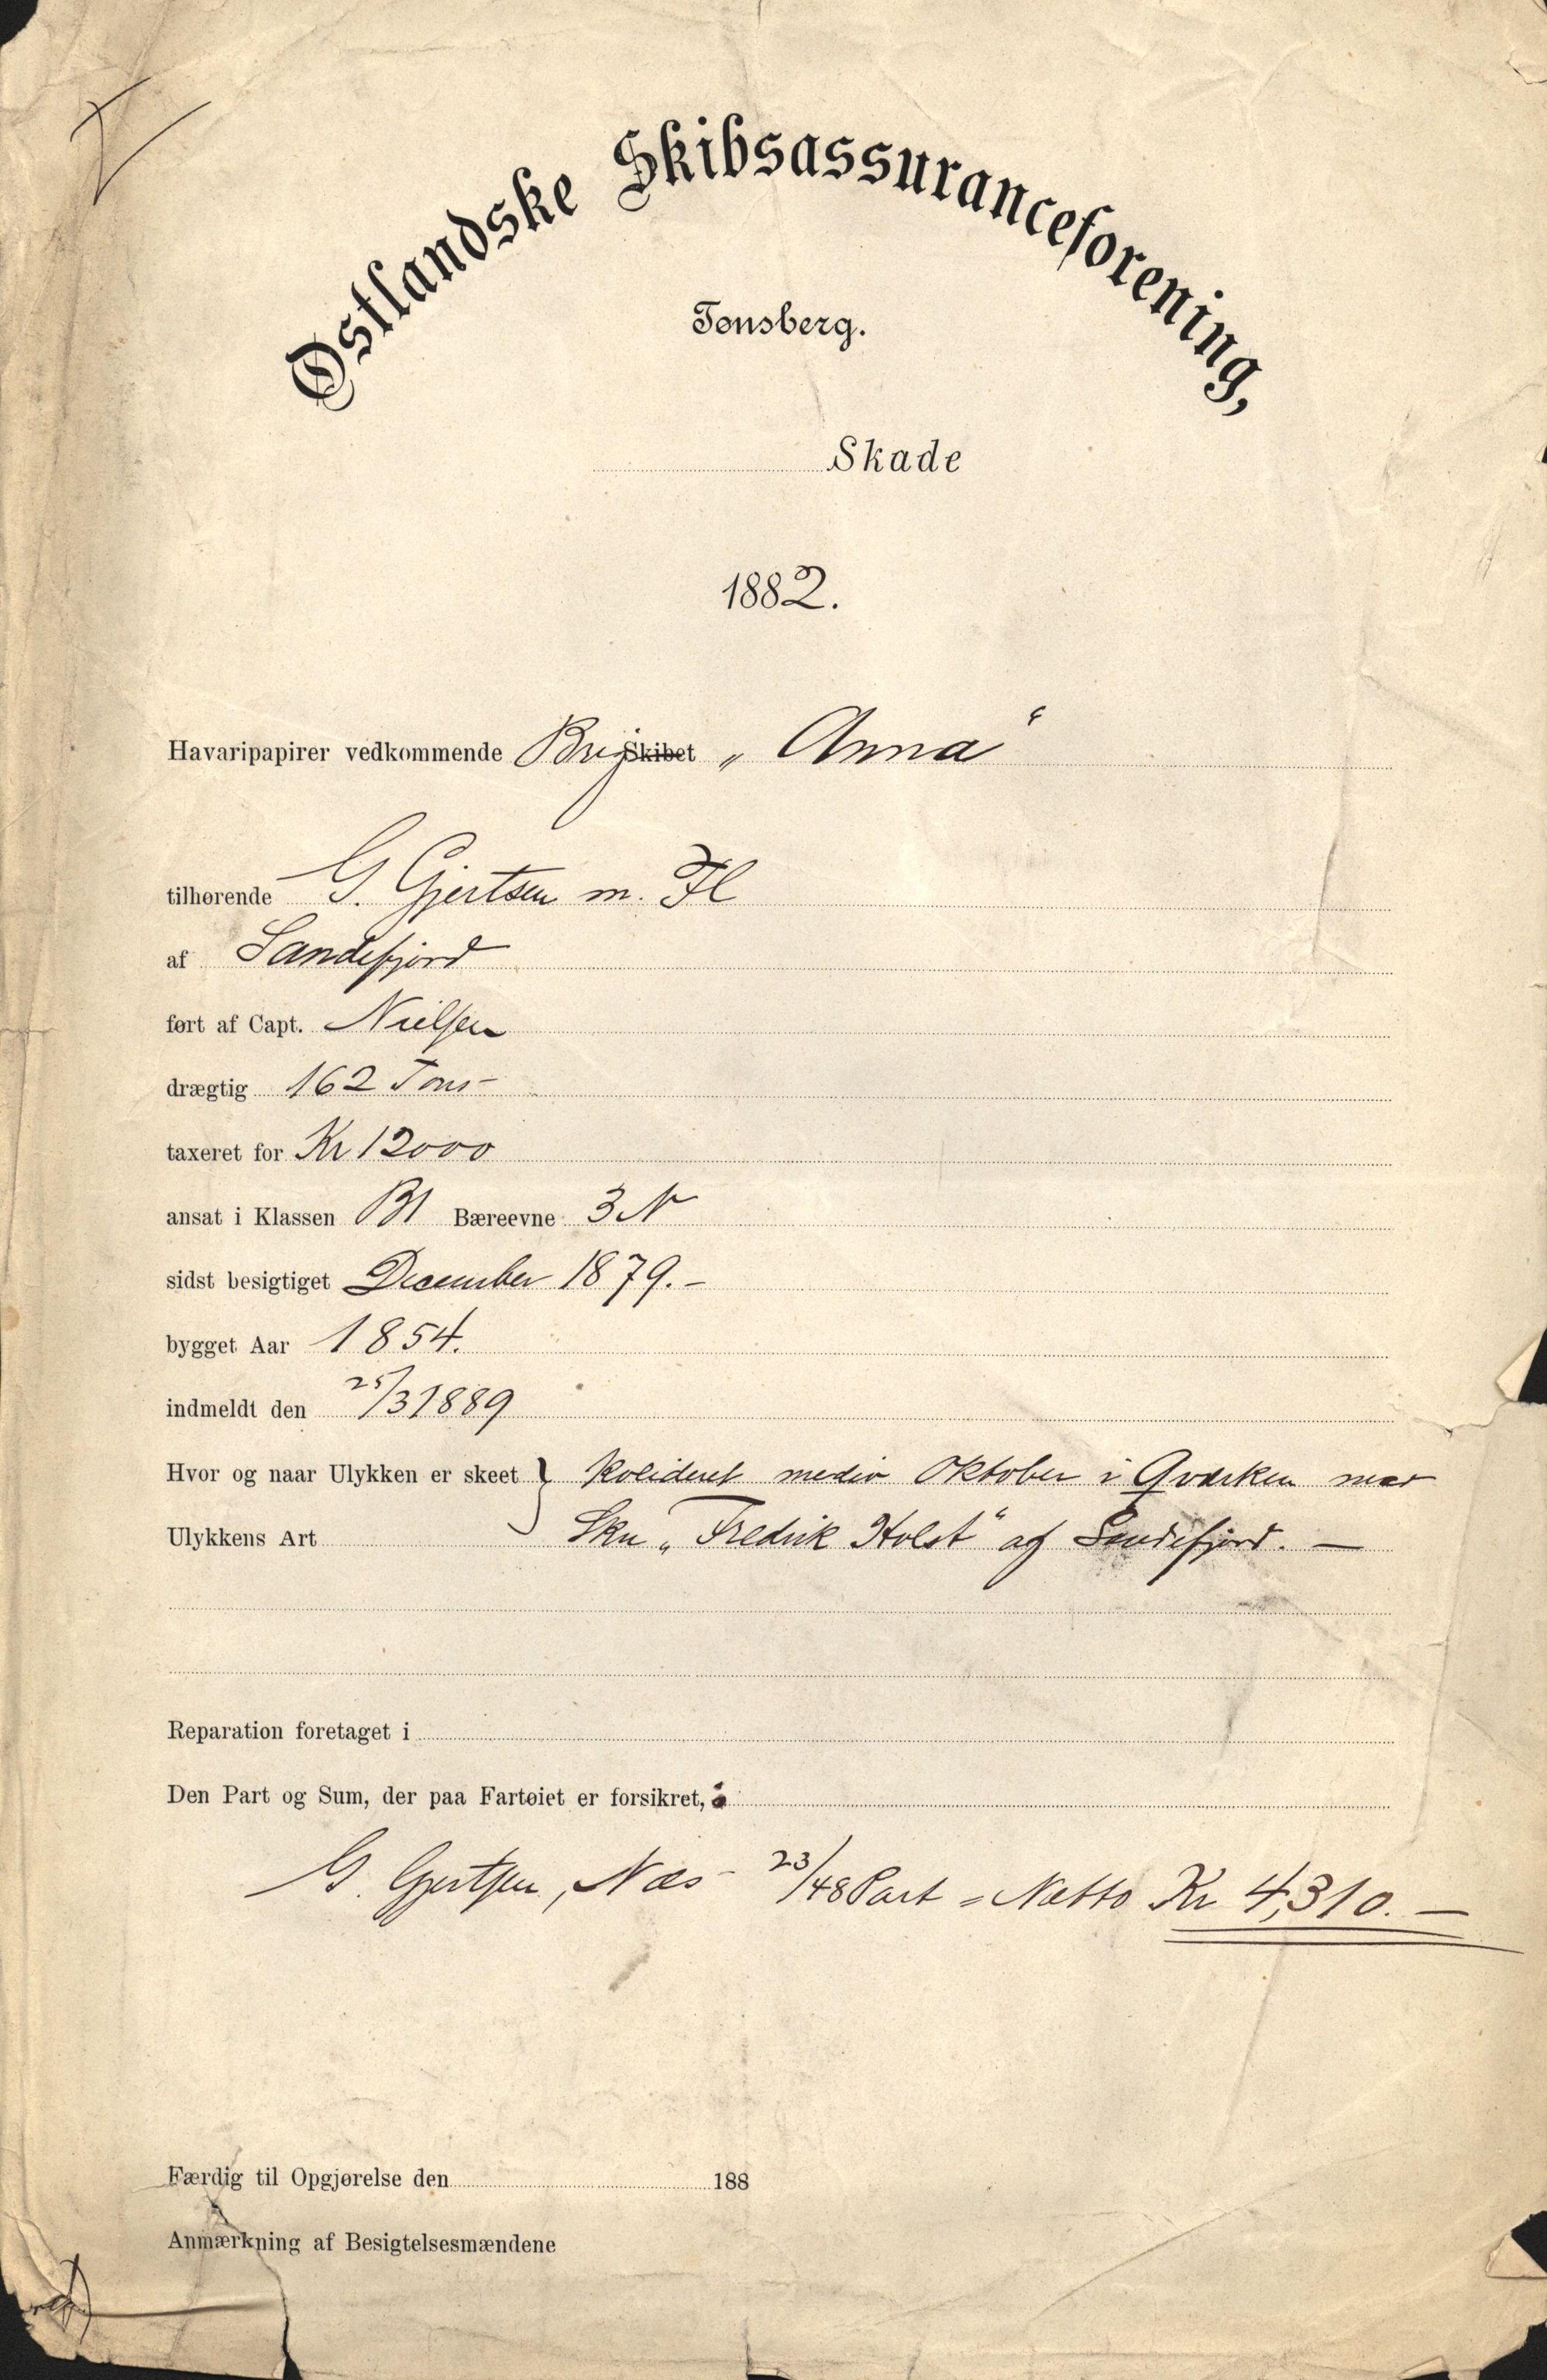 Østlandske Skibsassuranceforening,
Tønsberg.
Skade
1882.
Havaripapirer vedkommende Brig Skibet „Anna“
tilhørende G. Gjertsen m. Fl
af Sandefjord
ført af Capt. Nielsen
drægtig 162 Tons
taxeret for Kr 12000
ansat i Klassen B1 Bæreevne 3 N
sidst besigtiget December 1879.-
bygget Aar 1854.
indmeldt den 25/3 1889
Hvor og naar Ulykken er skeet } kolideret medio Oktober i Qvarken med
Ulykkens Art Skn „Fredrik Holst“ af Sandefjord. —
Reparation foretaget i
Den Part og Sum, der paa Fartøiet er forsikret,
G. Gjertsen, Næs - 23/48 Part = Netto Kr 4,310. —
Færdig til Opgjørelse den 188
Anmærkning af Besigtelsesmændene